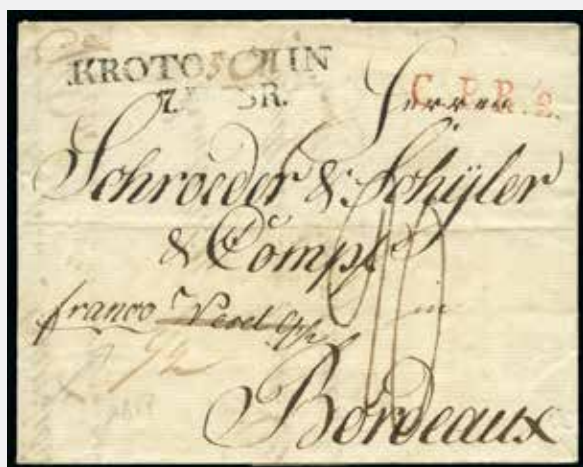 KROTOSCHIN
7. BR.
C. P. R. 2.
Herren
Schröeder & Schÿler
& Comp.
franco Wesel
in
Bordeaux